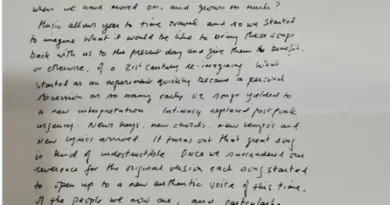 when we have moved on, and grown so much?
Music allows you to time travel and so we started
to imagine what it would be like to bring these songs
back with us to the present day and give them the benefit,
or otherwise, of a 21st century re-imagining. What
started as an experiment quickly became a personal
obsession as so many early U2 songs yielded to
a new interpretation. Intimacy replaced post punk
urgency. New keys, new chords, new tempos and
new lyrics arrived. It turns out that great song
is kind of indestructible. Once we surrendered our
reverence for the original version each song started
to open up to a new authentic voice of this time,
of the people we now are, and particularly